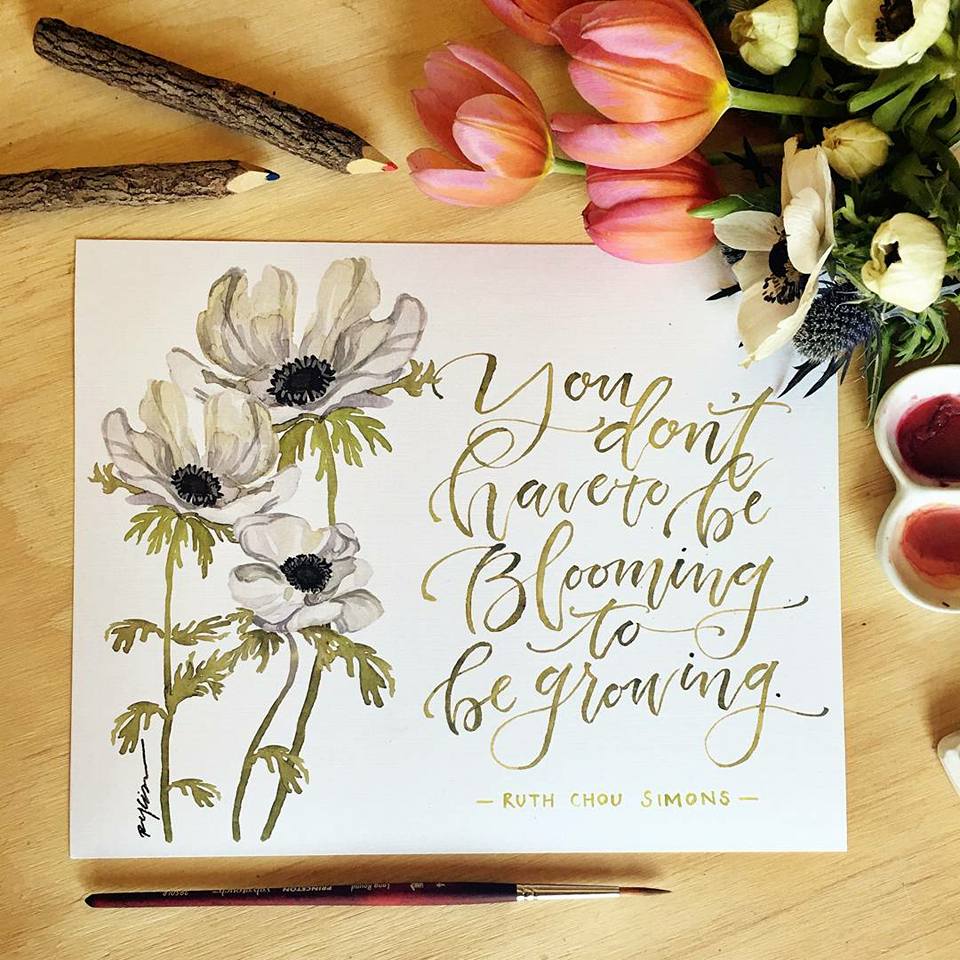 You
don't
have to be
Blooming
to
be growing.
— RUTH CHOU SIMONS —
PRINCETON
Long Round